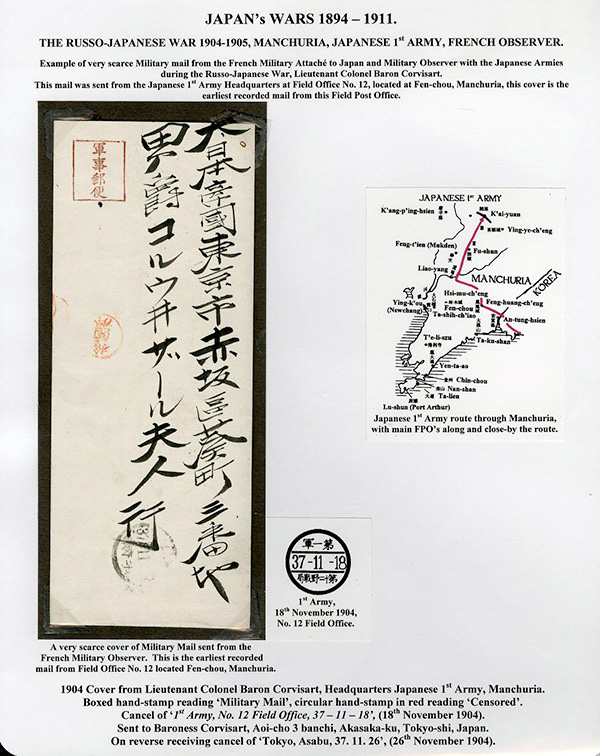 JAPAN's WARS 1894 – 1911.
THE RUSSO-JAPANESE WAR 1904-1905, MANCHURIA, JAPANESE 1st ARMY, FRENCH OBSERVER.
Example of very scarce Military mail from the French Military Attaché to Japan and Military Observer with the Japanese Armies
during the Russo-Japanese War, Lieutenant Colonel Baron Corvisart.
This mail was sent from the Japanese 1st Army Headquarters at Field Office No. 12, located at Fen-chou, Manchuria, this cover is the
earliest recorded mail from this Field Post Office.
軍事郵便
大日本帝國東京市赤坂區葵町三番地
男爵コルウ井ザール夫人行
JAPANESE 1st ARMY
K'ang-p'ing-hsien
K'ai-yuan
Ying-ye-ch'eng
Feng-t'ien (Mukden)
Fu-shun
Liao-yang
MANCHURIA
KOREA
Hsi-mu-ch'eng
Ying-k'ou
(Newchang)
Fen-chou
Feng-huang-ch'eng
Ta-shih-ch'iao
An-tung-hsien
Ta-ku-shan
T'e-li-szu
Yen-ta-ao
Chin-chou
Nan-shan
Ta-lien
Lu-shun (Port Arthur)
Japanese 1st Army route through Manchuria,
with main FPO's along and close-by the route.
第一軍
37-11-18
第十二野戰局
1st Army,
18th November 1904,
No. 12 Field Office.
A very scarce cover of Military Mail sent from the
French Military Observer. This is the earliest recorded
mail from Field Office No. 12 located Fen-chou, Manchuria.
1904 Cover from Lieutenant Colonel Baron Corvisart, Headquarters Japanese 1st Army, Manchuria.
Boxed hand-stamp reading 'Military Mail', circular hand-stamp in red reading 'Censored'.
Cancel of '1st Army, No. 12 Field Office, 37 – 11 – 18', (18th November 1904).
Sent to Baroness Corvisart, Aoi-cho 3 banchi, Akasaka-ku, Tokyo-shi, Japan.
On reverse receiving cancel of 'Tokyo, Asabu, 37. 11. 26', (26th November 1904).